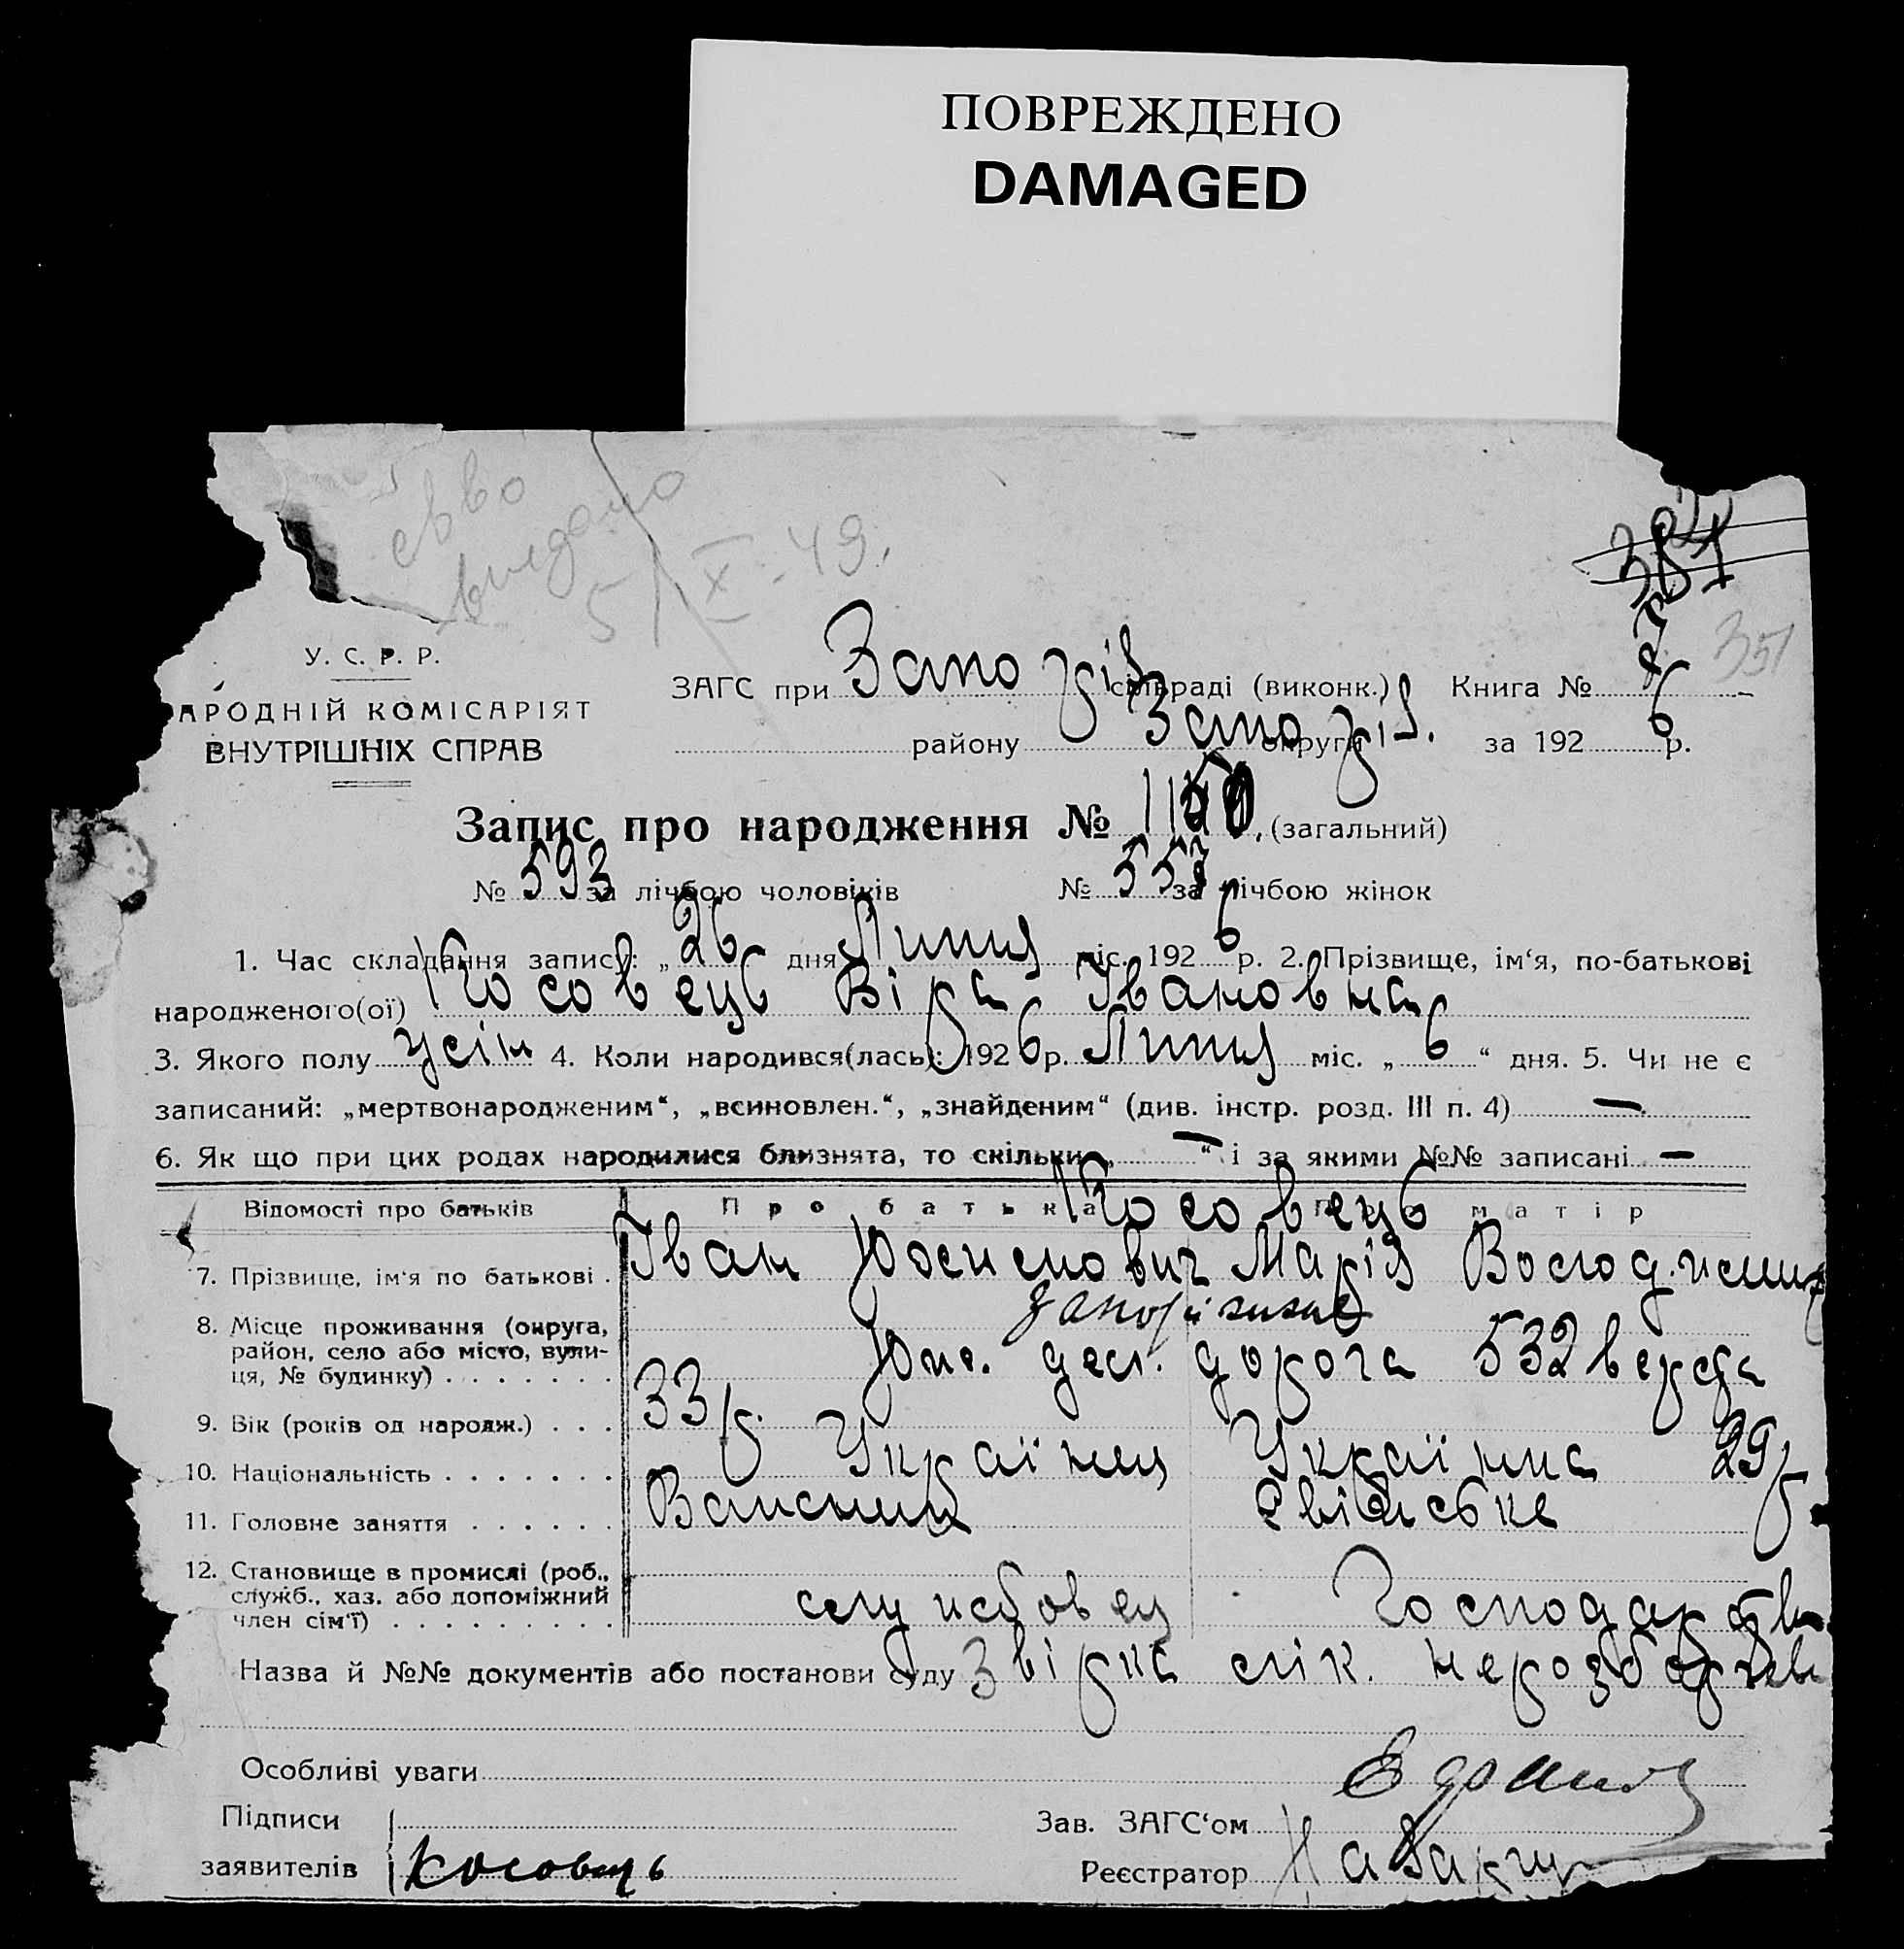 ПОВРЕЖДЕНО
DAMAGED
видано
5/X-49.
381
351
У. С. Р. Р.
АРОДНІЙ КОМІСАРІЯТ
ВНУТРІШНІХ СПРАВ
ЗАГС при Запоріз сільраді (виконк.) Книга №
району Запоріз. округи за 1926 р.
Запис про народження № 1150 (загальний)
№ 593 за лічбою чоловіків № 557 за лічбою жінок
1. Час складання запису: „ 26 дня Липня міс. 1926 р. 2. Прізвище, ім‘я, по-батькові
народженого(ої) Косовець Віра Івановна
3. Якого полу жін 4. Коли народився(лась): 1926 р. Липня міс. „ 6 “ дня. 5. Чи не є
записаний: „мертвонародженим“, „всиновлен.“, „знайденим“ (див. інстр. розд. III п. 4) —
6. Як що при цих родах народилися близнята, то скільки „ — “ і за якими №№ записані —
Відомості про батьків Про батька Про матір
Косовець
7. Прізвище, ім‘я по батькові . Іван Юосипович Марія Володимир
8. Місце проживання (округа, район, село або місто, вулиця, № будинку) . . . . . . .
Запоріжжя
дорога 532 верста
9. Вік (років од народж.) . . . 33 р. 29 р.
10. Національність . . . . . . . Українец Українка
11. Головне заняття . . . . . . Хатнє
12. Становище в промислі (роб., служб., хаз. або допоміжний член сім‘ї) . . . . . . . . .
службовец Господарство
Назва й №№ документів або постанови суду Звірка лік.
Особливі уваги
Підписи заявителів Косовець
Зав. ЗАГС‘ом
Реєстратор